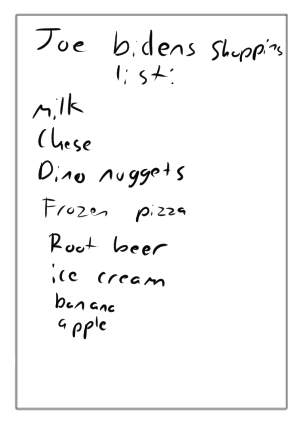 Joe bidens shopping
list:
milk
Chese
Dino nuggets
Frozen pizza
Root beer
ice cream
banana
apple